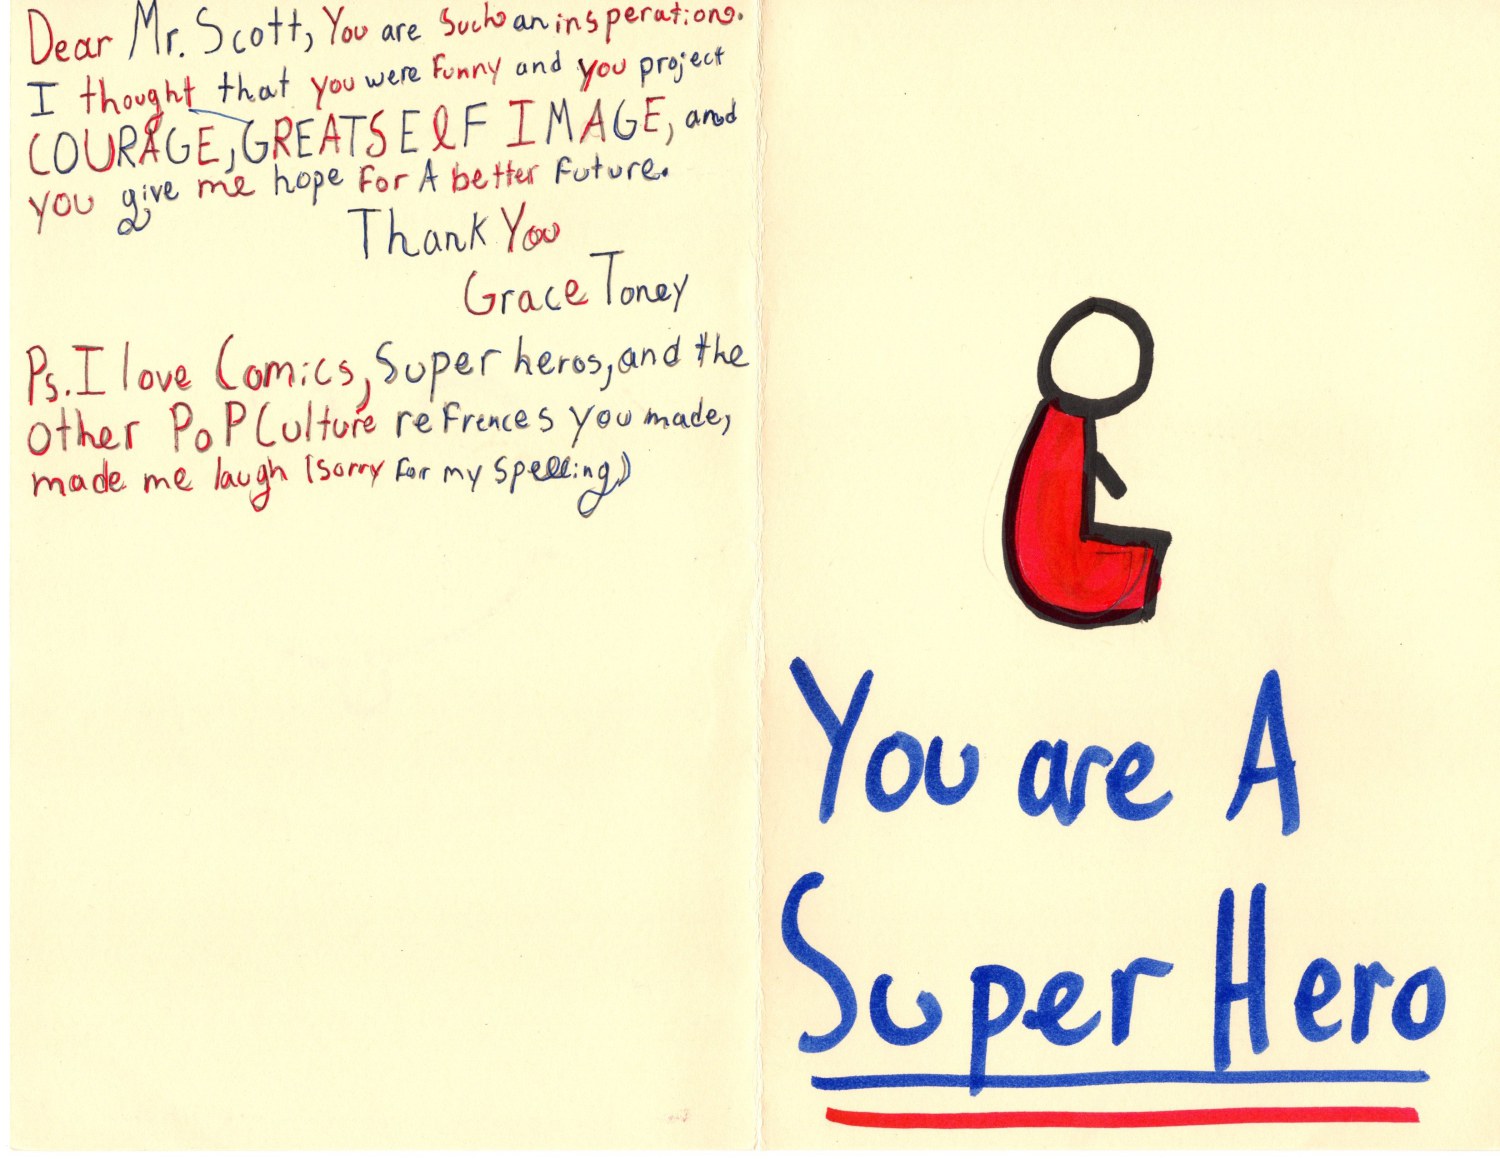 Dear Mr. Scott, You are Such an insperations.
I thought that you were Funny and you project
COURAGE, GREAT SElF IMAGE, and
you give me hope For A better Future.
Thank You
Grace Toney
Ps. I love Comics, Super heros, and the
other PoP Culture refrences you made,
made me laugh (Sorry For my Spelling)
You are A
Super Hero